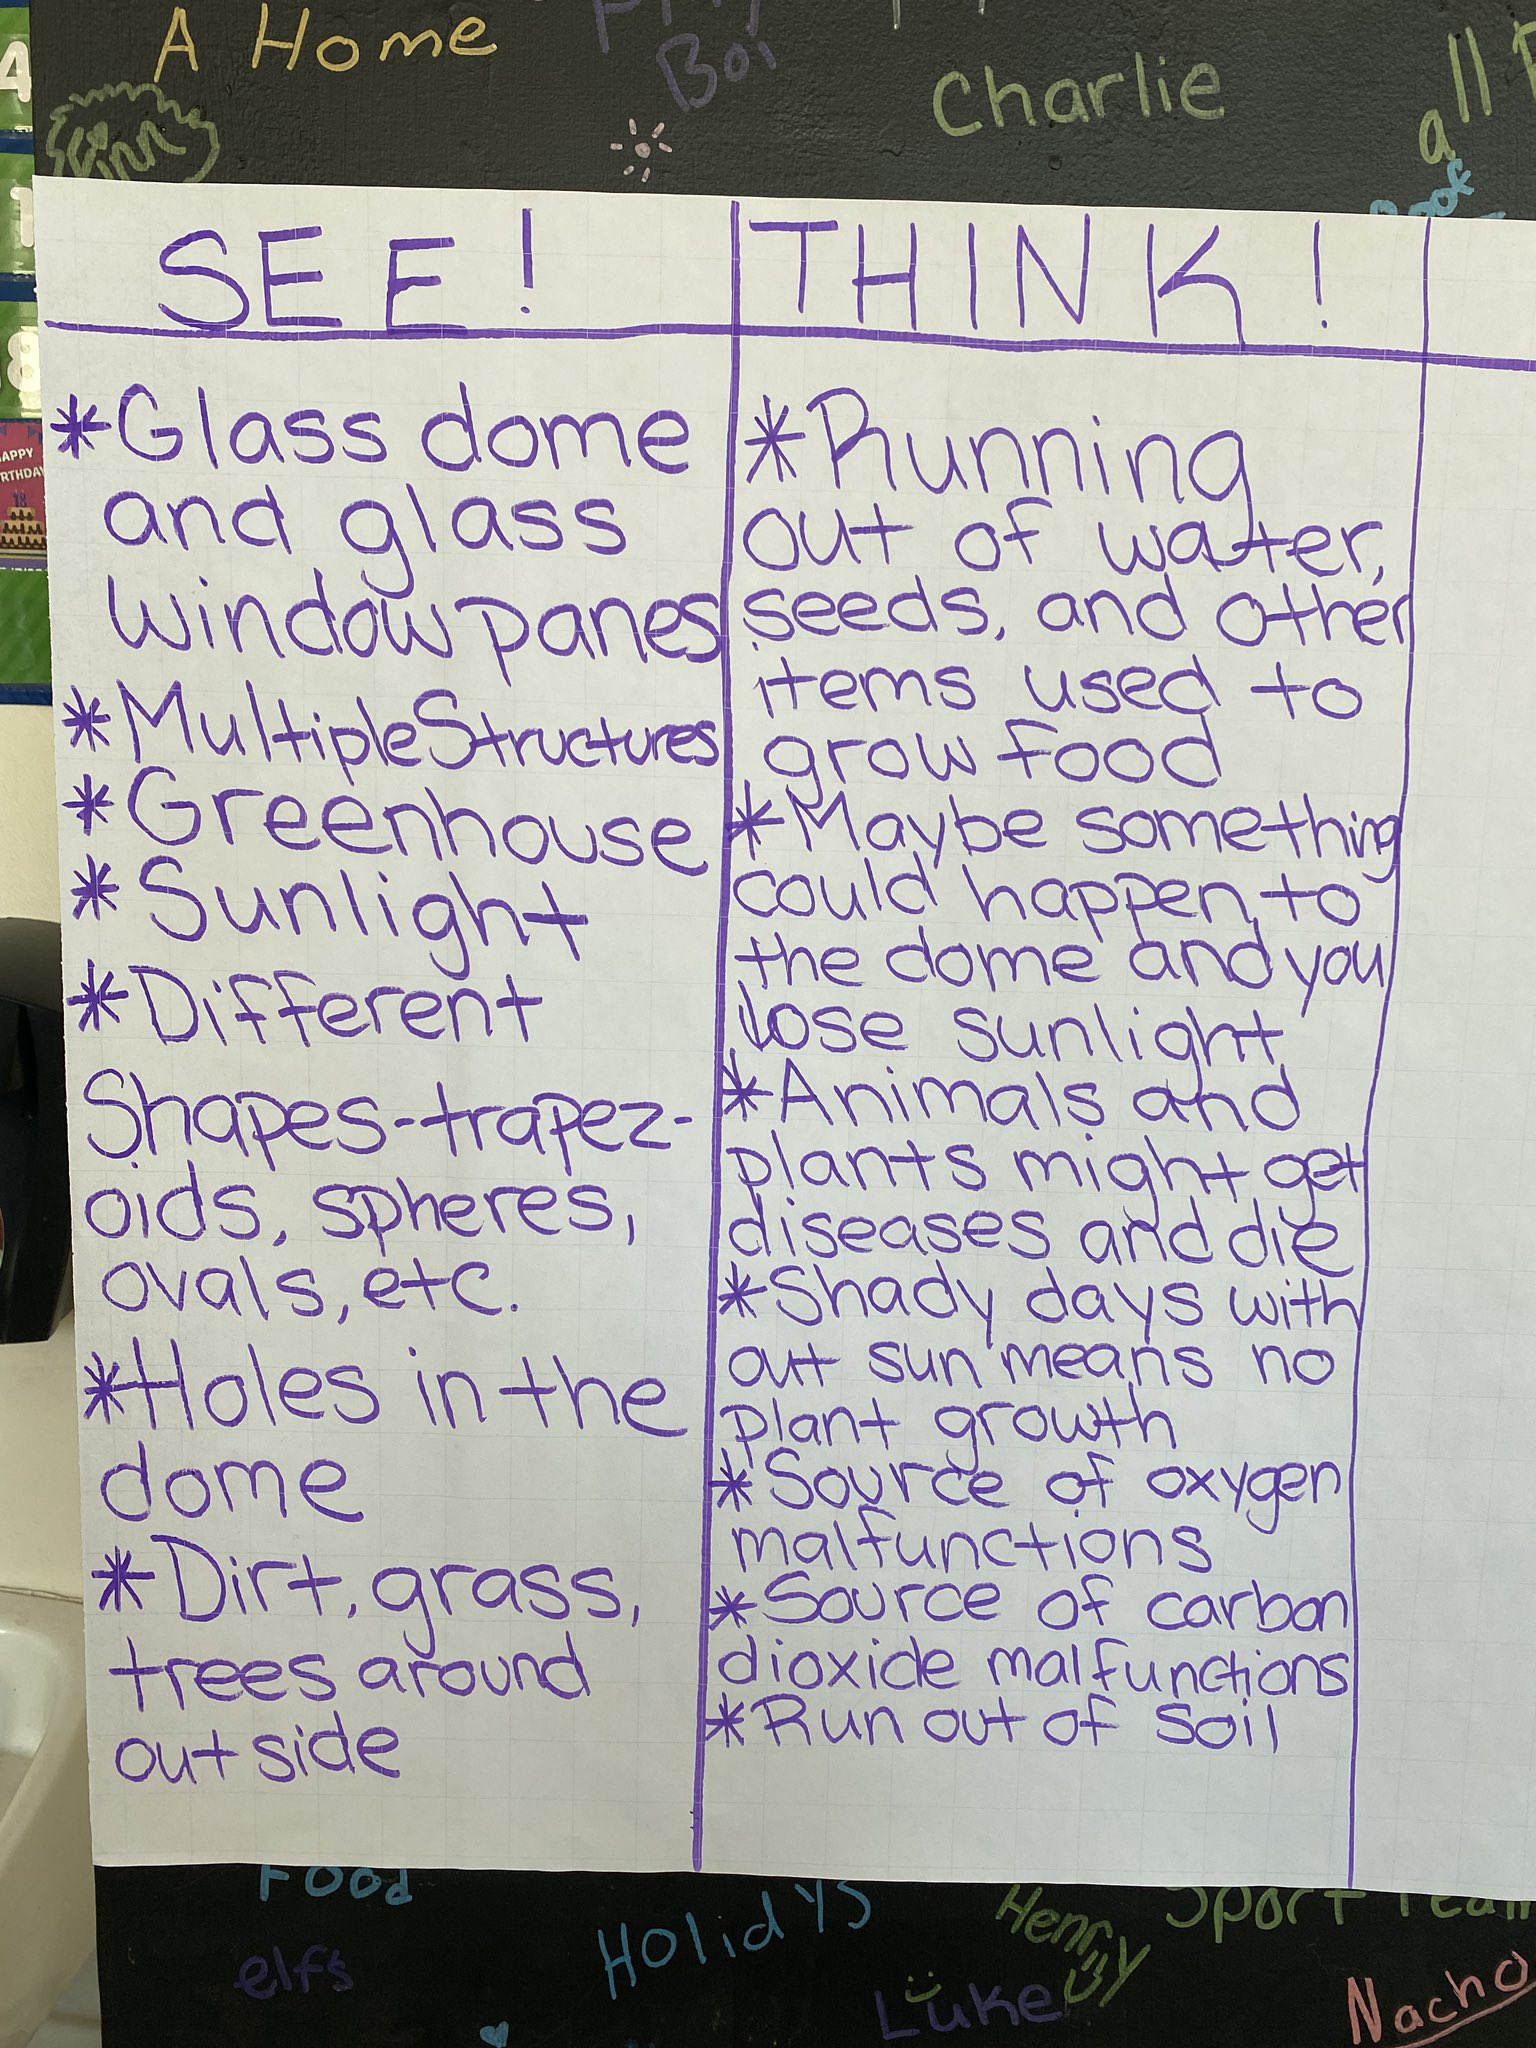 A Home
Boi
Charlie
all
Finn
SEE!
*Glass dome
and glass
window panes
*Multiple Structures
*Greenhouse
*Sunlight
*Different
Shapes-trapez-
oids, spheres,
ovals, etc.
*Holes in the
dome
*Dirt, grass,
trees around
outside
THINK!
*Running
out of water,
seeds, and other
items used to
grow food
*Maybe something
could happen to
the dome and you
lose sunlight
*Animals and
plants might get
diseases and die
*Shady days with
out sun means no
plant growth
*Source of oxygen
malfunctions
*Source of carbon
dioxide malfunctions
*Run out of soil
HAPPY
18
Food
Holidys
Henry
Sport
elfs
Luke
Nacho